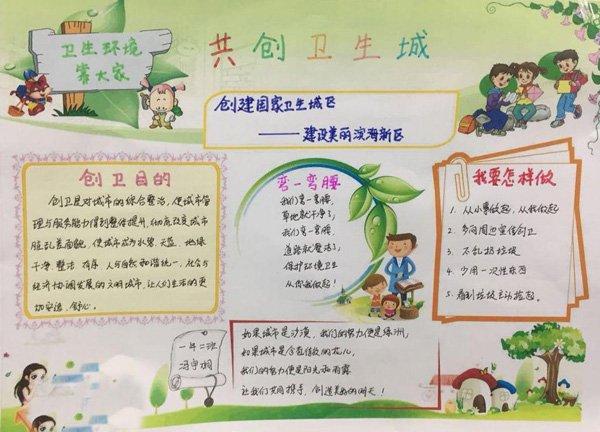 卫生环境
靠大家
共创卫生城
创建国家卫生城区
——建设美丽滨海新区
创卫目的
创卫是对城市的综合整治,使城市管
理与服务能力得到整体提升,彻底改变城市
脏乱差面貌,使城市成为水碧、天蓝、地绿
干净、整洁、有序、人与自然和谐统一,社会与
经济协调发展的文明城市,让人们生活的更
加安逸、舒心。
弯一弯腰
我们弯一弯腰,
草地就干净了;
我们弯一弯腰,
道路就整洁了;
保护环境卫生
从你我做起!
我要怎样做
1. 从小事做起,从我做起
2. 多向周边宣传创卫
3. 不乱扔垃圾
4. 少用一次性东西
5. 看到垃圾主动捡起。
一年二班
如果城市是沙漠,我们的努力便是绿洲,
如果城市是含苞待放的花儿,
我们的努力便是阳光和雨露
让我们共同携手,创造美好的明天!